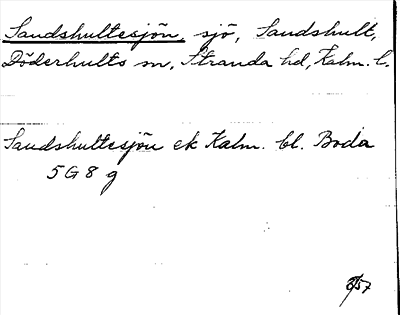 Sandshultesjön, sjö, Sandshult,
Döderhults sn, Stranda hd, Kalm. l.
Sandshultesjön ek Kalm. bl. Boda
5G8g